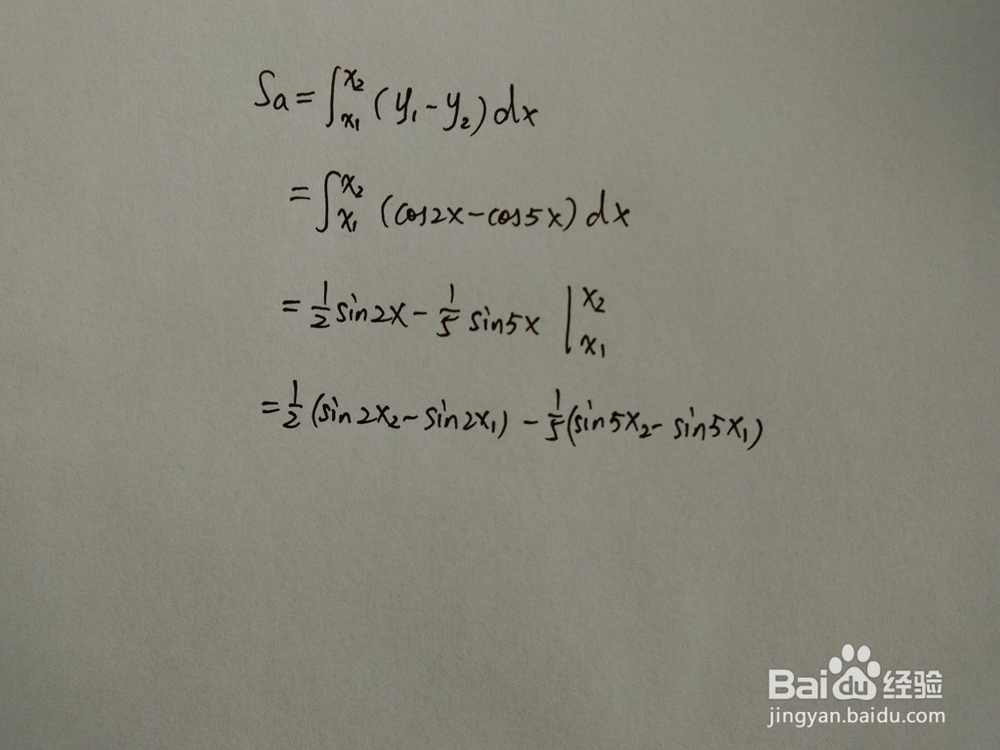 Sa = ∫_{x₁}^{x₂} (y₁ - y₂) dx
= ∫_{x₁}^{x₂} (cos2x - cos5x) dx
= 1/2 sin2x - 1/5 sin5x |_{x₁}^{x₂}
= 1/2 (sin2x₂ - sin2x₁) - 1/5 (sin5x₂ - sin5x₁)
Baidu经验
jingyan.baidu.com